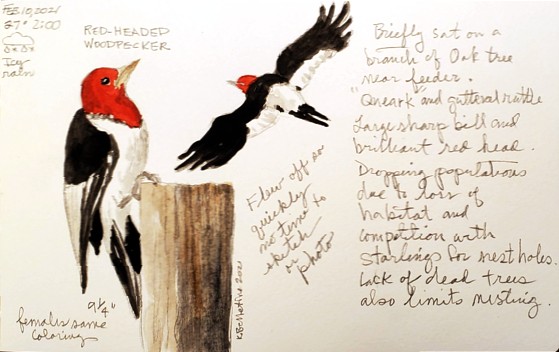 FEB. 10, 2021
37° 2:00
Icy
rain
RED-HEADED
WOODPECKER
Briefly sat on a
branch of Oak tree
near feeder.
"Queark" and gutteral rattle
Large sharp bill and
brilliant red head.
Dropping populations
due to loss of
habitat and
competition with
starlings for nest holes.
Lack of dead trees
also limits nesting.
Flew off so
quickly
no time to
sketch
or
photo
9 1/4"
females same
coloring
2021